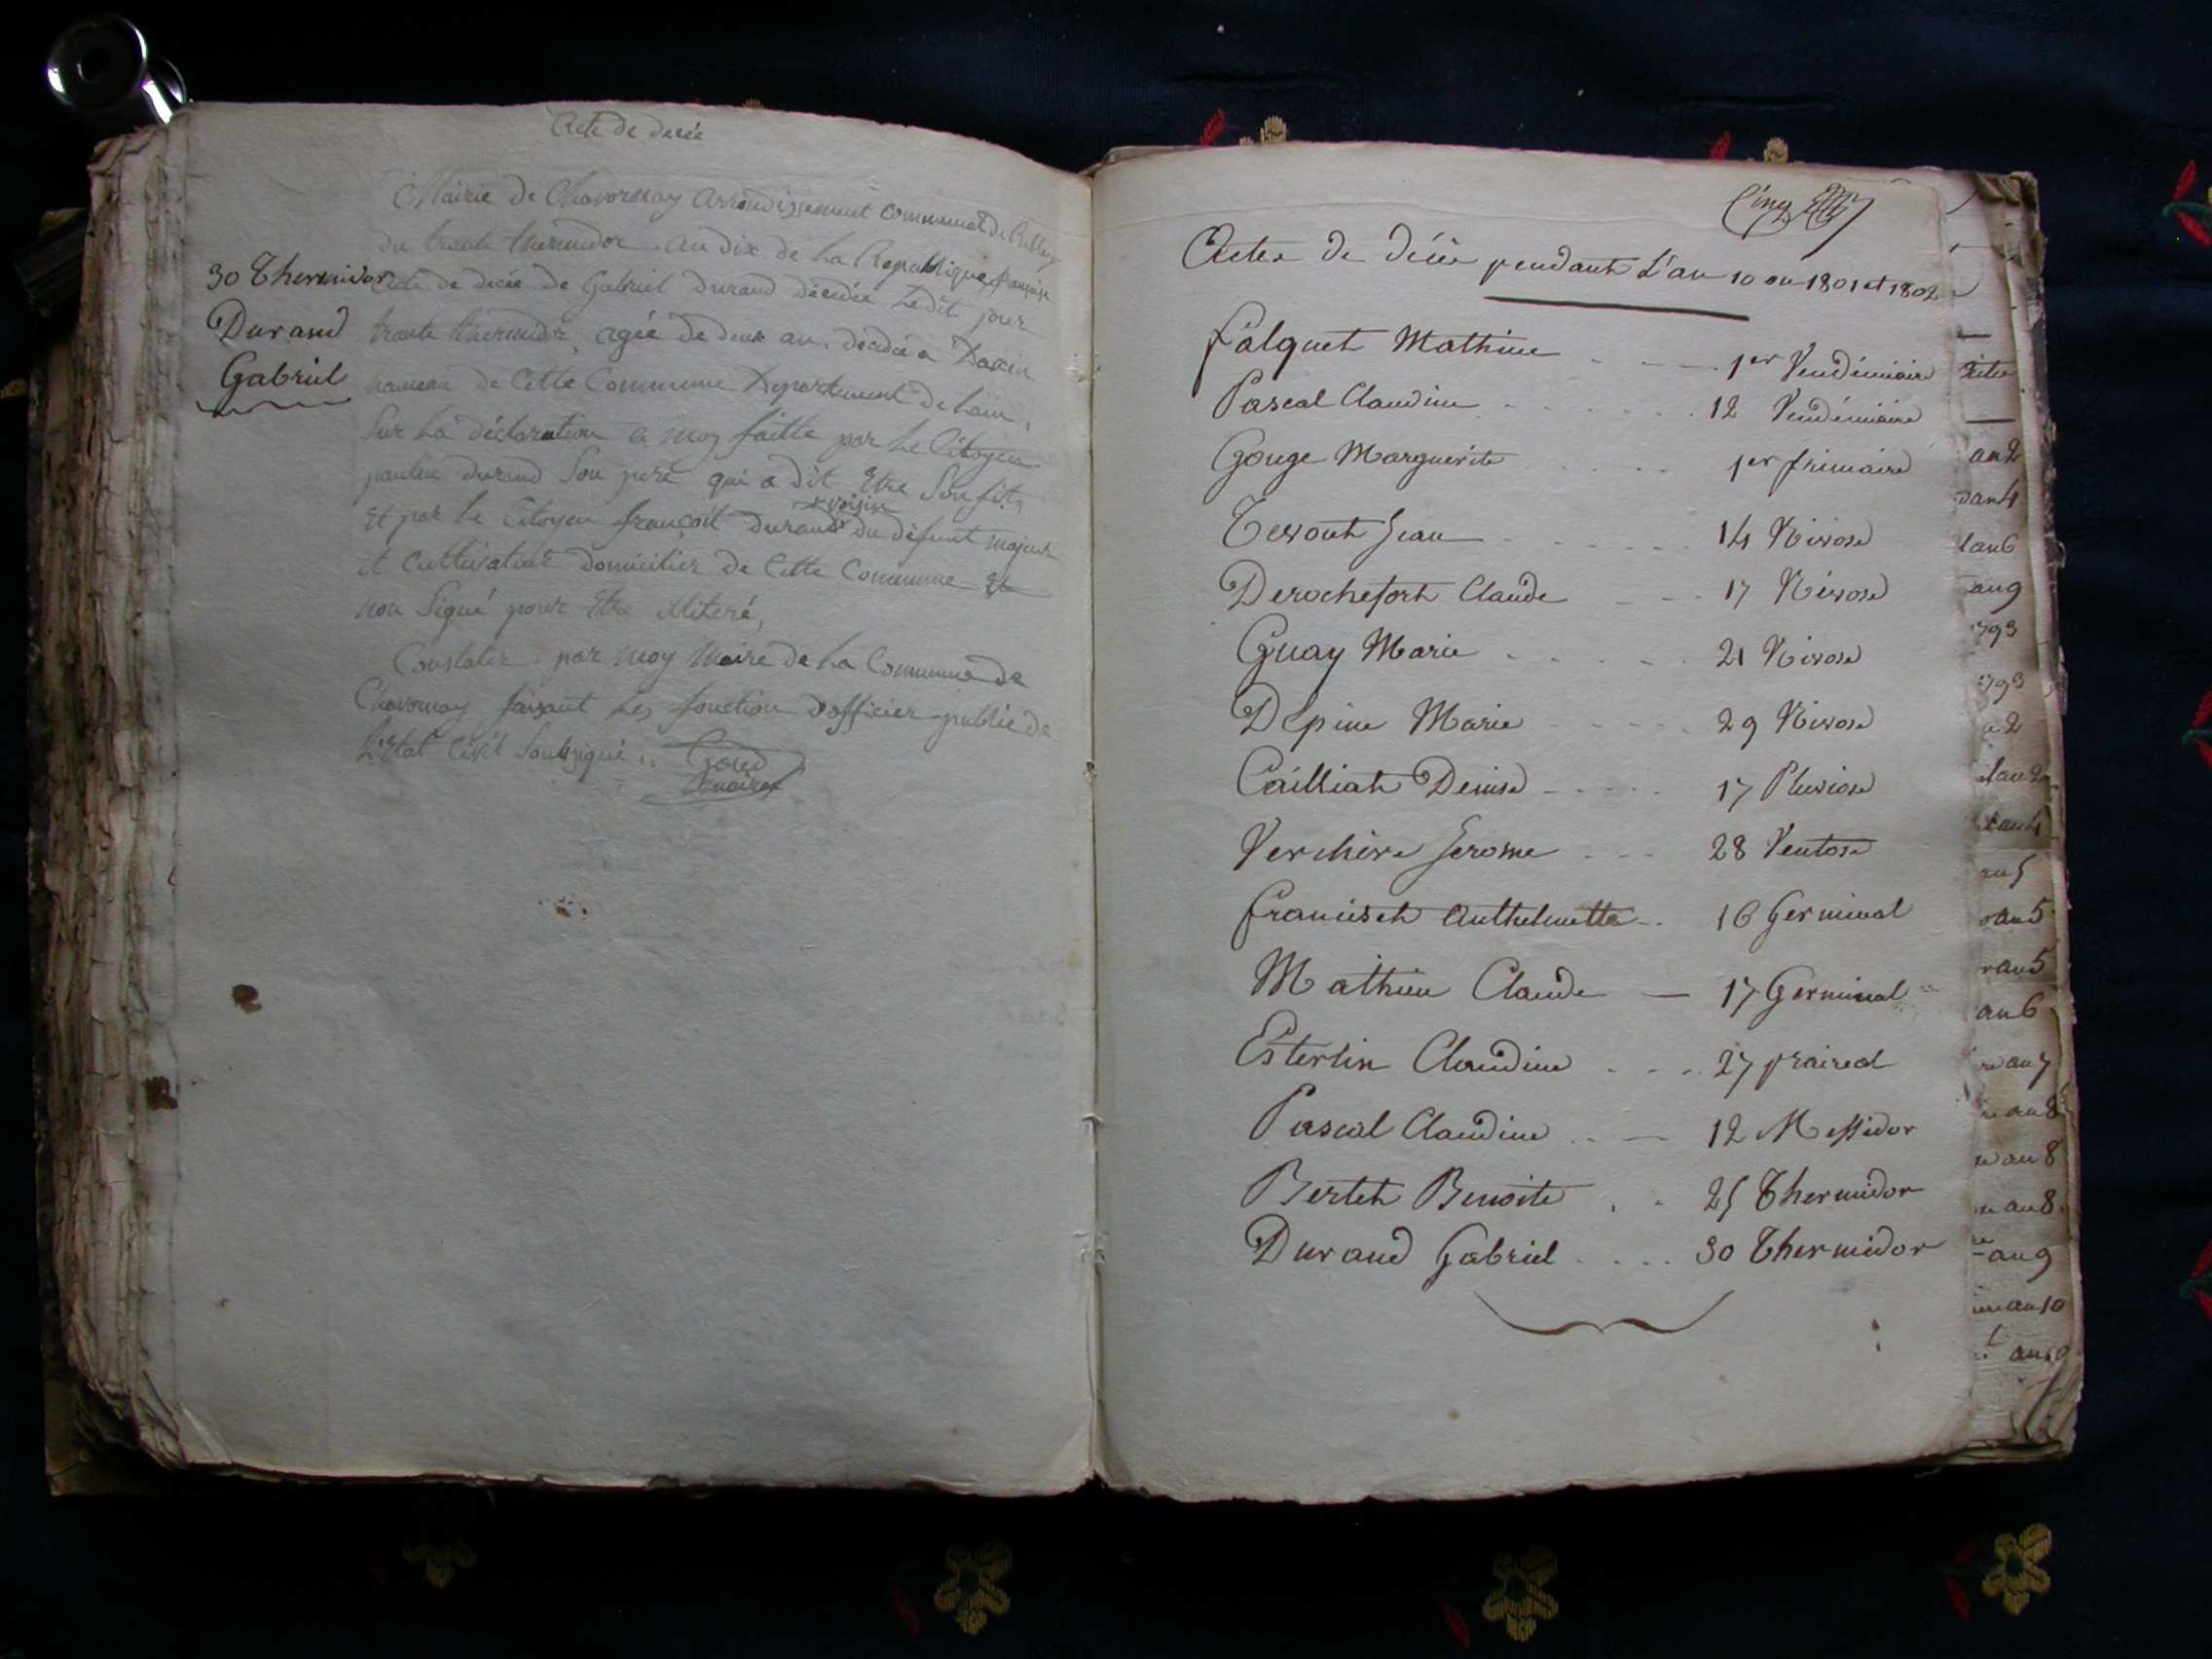 Acte de decée
Mairie de Chavornay arrondissement communal de Belley
du trante thermidor an dix de La Republique françoise
30 Thermidor
Durand
Gabriel
acte de decée de Gabriel durand décédée Ledit jour
trante thermidor, agée de deux an. decedée a Dazin
hameau de Cette Commune Departement de Lain,
Sur La déclaration a moy faitte par Le Citoyen
durand Son pere qui a dit Etre Son fils,
x voisin
Et par Le Citoyen françoit durand x du défunt majeur
et Cultivateur domicilier de Cette Commune Et
non Signé pour Etre illiteré,
Constater par moy Maire de La Commune de
Chavornay faisant Les fonction d'officier public de
L'Etat Civil Soussigné
maire
Cinq
Actes de décès pendant L'an 10 ou 1801 et 1802
falquet Mathieu - - - 1er Vendémiaire
Pascal Claudine - - - - - - - 12 Vendémiaire
Gouge Marguerite - - - - - 1er frimaire
Jean - - - - - - - 14 Nivose
Derochefort Claude - - - 17 Nivose
Guay Marie - - - - - - 21 Nivose
Dépine Marie - - - - - 29 Nivose
Cailliat Denise - - - - - 17 Pluviose
Verchère Jerosme - - - 28 Ventose
Anthelmette - - 16 Germinal
Mathieu Claude — 17 Germinal
Esterlin Claudine - - - 27 prairial
Pascal Claudine - - — 12 Messidor
Bertet Benoite - - 25 Thermidor
Durand Gabriel - - - - 30 Thermidor
an 2
an 4
an 6
an 9
1793
1793
2
an 2
an 4
an 5
an 5
an 5
an 6
an 7
an 8
an 8
an 8
an 9
an 10
an 10